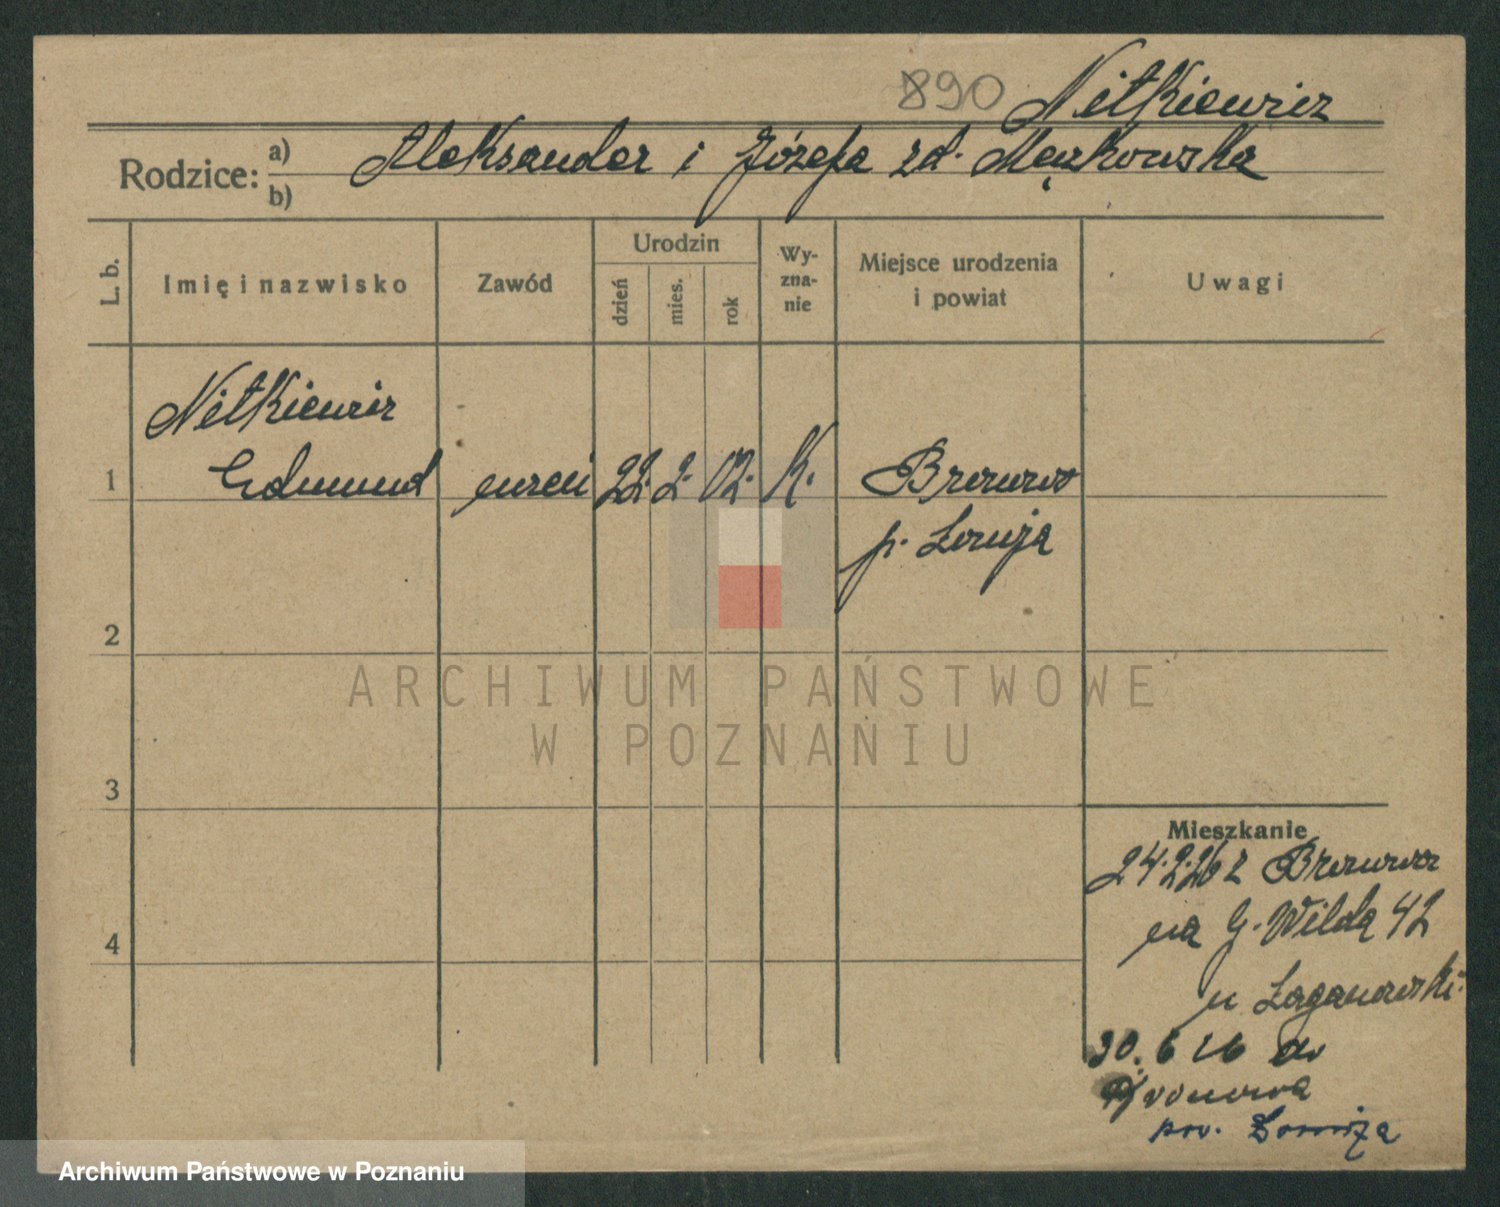 890 Nitkiewicz
Rodzice: a) b) Aleksander i Józefa zd. Mężkowska
L. b.
Imię i nazwisko
Zawód
Urodzin
dzień
mies.
rok
Wy-
zna-
nie
Miejsce urodzenia
i powiat
Uwagi
Nitkiewicz
1 Edmund uczeń 22. 2. 02. K. Bronowo
p. Łomża
2
3
4
Mieszkanie
24.2.26 z Bronowa
na G. Wildą 42
u Łaganowski.
30. 6 26 do
Bronowa
pow. Łomża
ARCHIWUM PAŃSTWOWE
W POZNANIU
Archiwum Państwowe w Poznaniu